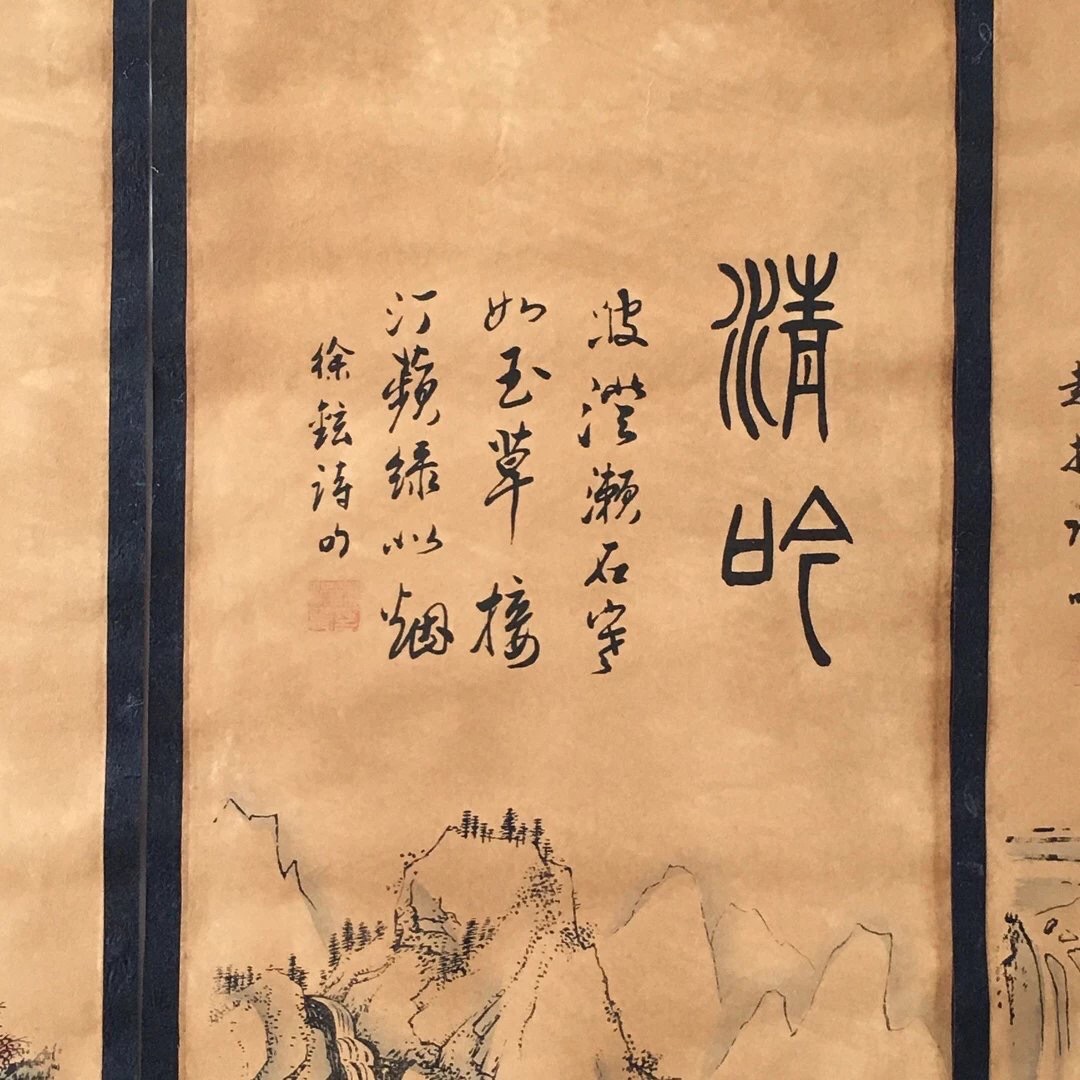 清吟
波澄瀨石寒
如玉草接
汀蘋綠似烟
徐鉉詩句